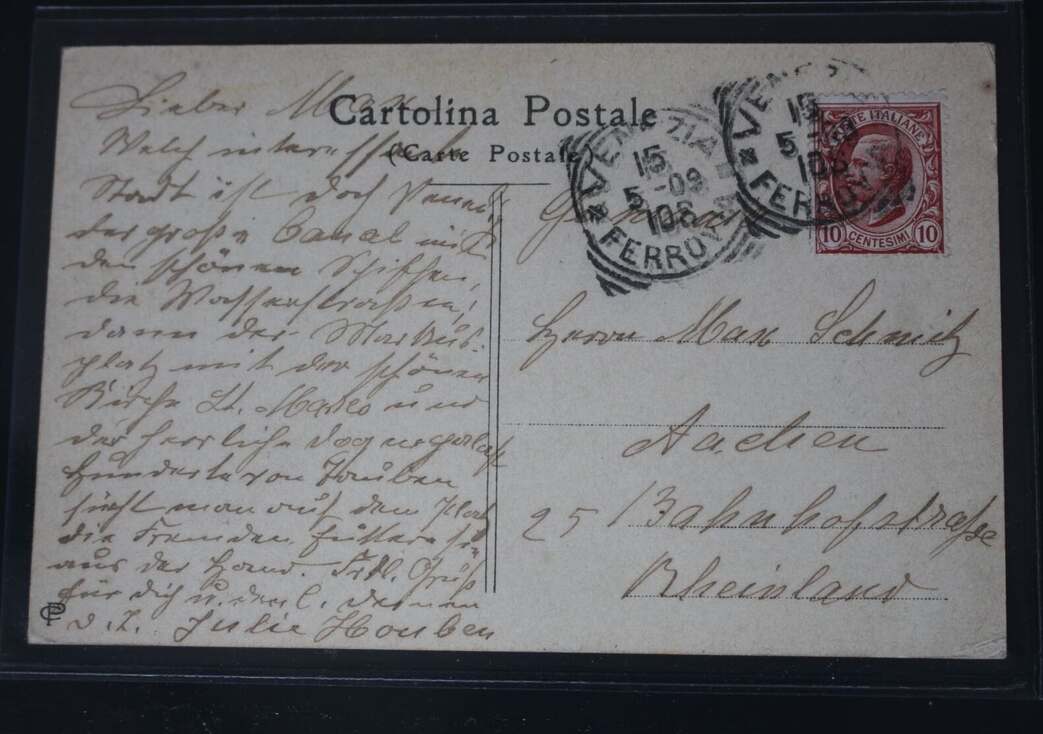 Cartolina Postale
(Carte Postale)
Lieber Max
Welch interessante
Stadt ist doch Vene
der große Canal mit
den schönen Schiffen,
die Wasserstraßen,
dann der Markus-
platz mit der schönen
Kirche St. Marko und
der herrliche Dogenpalast
Hunderte von Tauben
sieht man auf dem Platz
die Fremden füttern sie
aus der Hand. Frdl. Gruß
für dich u. die l. deinen
d. T. Julie Houben
VENEZIA
15
5-09
10S
FERROVIA
VENEZIA
15
5-09
10S
FERROVIA
POSTE ITALIANE
10 CENTESIMI 10
Germania
Herrn Max Schmitz
Aachen
25 Bahnhofstraße
Rheinland